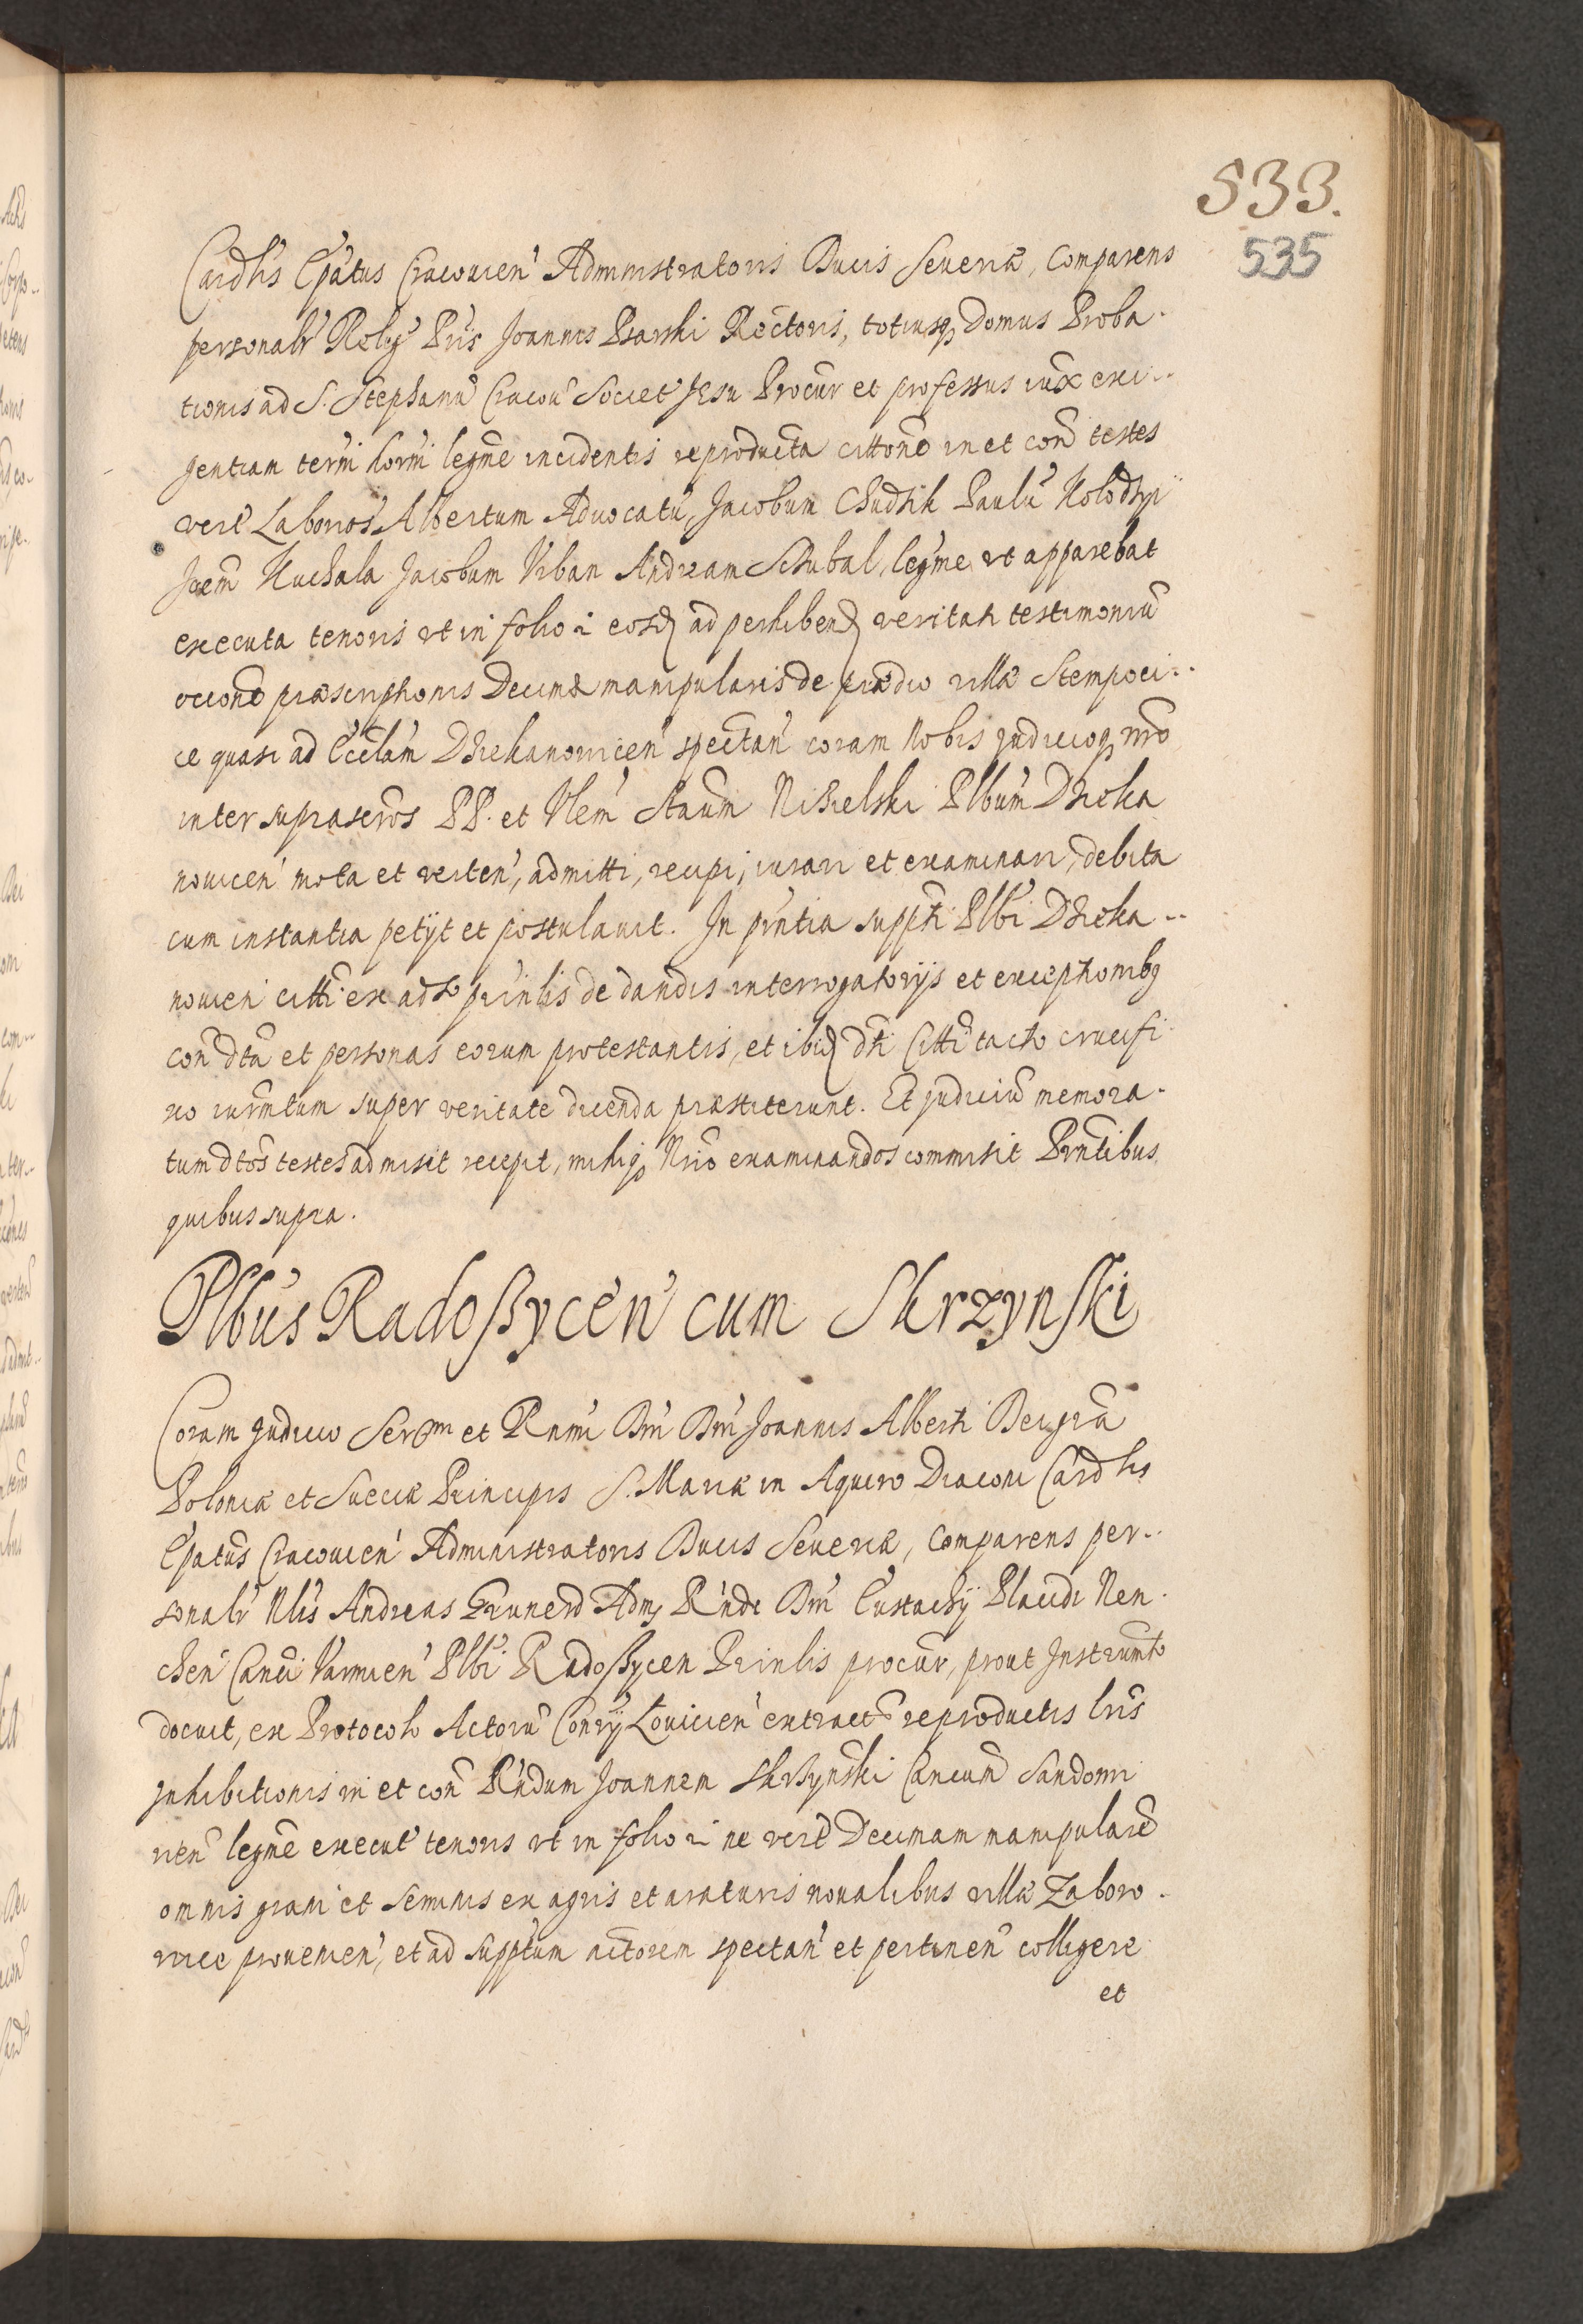 533.
535
Cardlis Epatus Cracouien Administratoris Ducis Seueriæ, Comparens
personalr Relig Pris Joannis Psarski Rectoris, totiusq Domus Proba-
tionis ad S. Stephanu Cracou Societ Jesu Procur et professus iux exi-
gentiam termi hormi legme incidentis reproducta cittone in et con testes
vere Laborios Albertum Aduocatu, Jacobum Chudzik Paulu Kolodzyi
Joem Kuchala Jacobum Vrban Andream Schubal, legme vt apparebat
executa tenoris vt in folio 2 eosd ad perhibend veritati testimoniu
occone præscriptionis Decimæ manipularis de prædio villæ Stempoci-
ce quasi ad Eccelam Dziekanouicen spectan coram Nobis Judicioq nro
inter suprascros PP. et Vlem Staum Nizielski Plbum Dzieka
nouicen mota et verten, admitti, recipi, iurari et examinari, debita
cum instantia petyt et postulauit. In pntia suppti Plbi Dzieka-
nouien citti ex adso prinlis de dandis interrogatoryis et exceptionibq
con dta et personas eorum protestantis, et ibid dti Citti tacto crucifi
xo iurmtum super veritate dicenda præstiterunt. Et Judiciu memora-
tum dtos testes admisit recepit, mihiq Nrio examinandos commisit Pntibus
quibus supra.
Plbus Radoszycen cum Skrzynski
Coram Judicio Sermi et Rnmi Dni Dni Joannis Alberti Dei gra
Poloniæ et Sueciæ Principis S. Mariæ in Aquiro Diaconi Cardlis
Epatus Cracouien Administratoris Ducis Seueriæ, Comparens per-
sonalr Nlis Andreas Grunerd Adm Rndi Dni Eustachy Placidi Nen-
chen Canci Varmien Plbi Radoszycen Prinlis procur, prout Instrumto
docuit, ex Protocolo Actoru Conry Louicien extracto reproductis lris
Inhibitionis in et con Rndum Joannem Skrzynski Cancum Sandomi
rien legme execut tenoris vt in folio 2 ne vere Decimam manipulare
omnis grani et seminis ex agris et araturis noualibus villæ Zaboro-
wice prouenien, et ad supptum actorem spectan et pertinen colligere
et